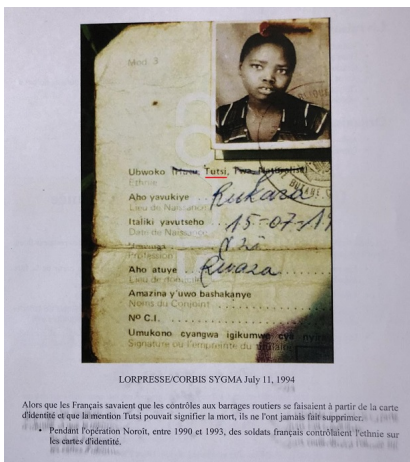 Mod. 3
Ubwoko (Hutu, Tutsi, Twa, Naturalisé)
Ethnie
Aho yavukiye Rukara
Lieu de Naissance
Italiki yavutseho 15-07-19
Date de Naissance
Profession
Aho atuye Rwaza
Lieu de domicile
Amazina y'uwo bashakanye
Noms du Conjoint
Nº C.I.
Umukono cyangwa igikumwe cya
Signature ou l'empreinte du titulaire
LORPRESSE/CORBIS SYGMA July 11, 1994
Alors que les Français savaient que les contrôles aux barrages routiers se faisaient à partir de la carte
d'identité et que la mention Tutsi pouvait signifier la mort, ils ne l'ont jamais fait supprimer.
• Pendant l'opération Noroît, entre 1990 et 1993, des soldats français contrôlaient l'ethnie sur
les cartes d'identité.